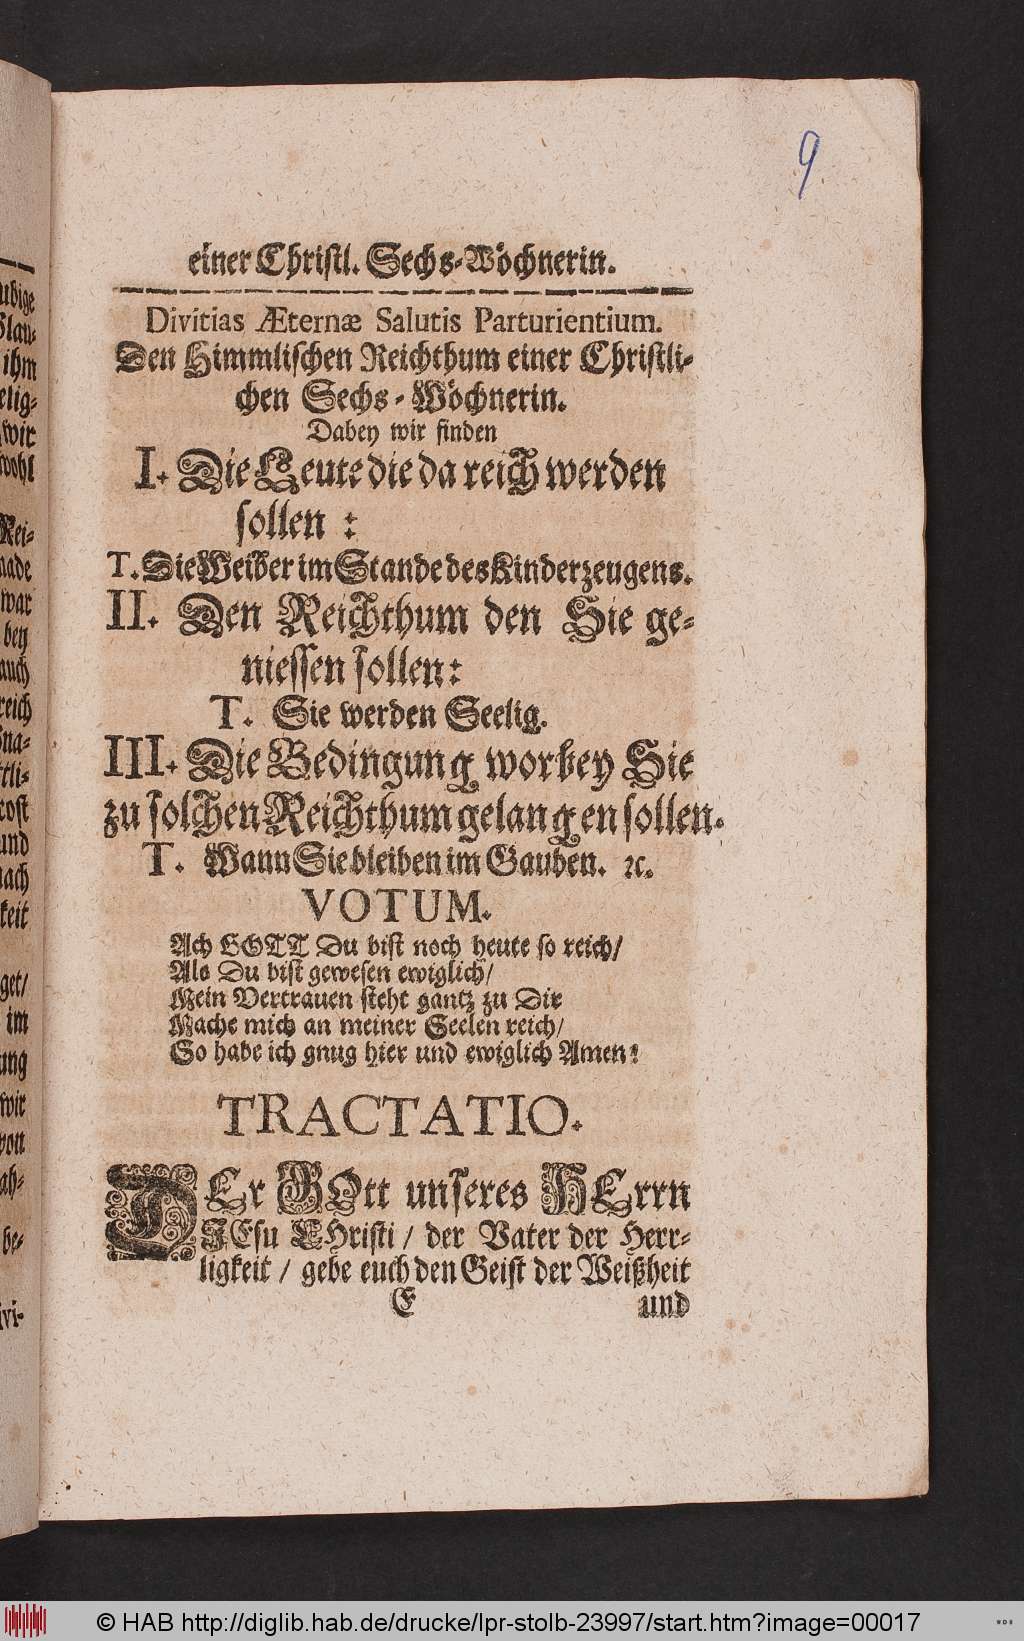 9
einer Christl. Sechs-Wöchnerin.
Divitias Æternæ Salutis Parturientium.
Den Himmlischen Reichthum einer Christli-
chen Sechs-Wöchnerin.
Dabey wir finden
I. Die Leute die da reich werden
sollen:
T. Die Weiber im Stande des Kinderzeugens.
II. Den Reichthum den Sie ge-
niessen sollen:
T. Sie werden Seelig.
III. Die Bedingung worbey Sie
zu solchen Reichthum gelangen sollen.
T. Wann Sie bleiben im Gauben. ꝛc.
VOTUM.
Ach GOTT Du bist noch heute so reich/
Als Du bist gewesen ewiglich/
Mein Vertrauen steht gantz zu Dir
Mache mich an meiner Seelen reich/
So habe ich gnug hier und ewiglich Amen!
TRACTATIO.
DEr GOtt unseres HErrn
JEsu CHristi/ der Vater der Herr-
ligkeit/ gebe euch den Geist der Weißheit
E und
ubige
Glau-
ihm
elig-
wir
wohl
Rei-
nade
war
bey
auch
reich
Gna-
ttli-
rost
und
nach
keit
get/
im
ung
wir
von
ah-
be-
ivi-
© HAB http://diglib.hab.de/drucke/lpr-stolb-23997/start.htm?image=00017